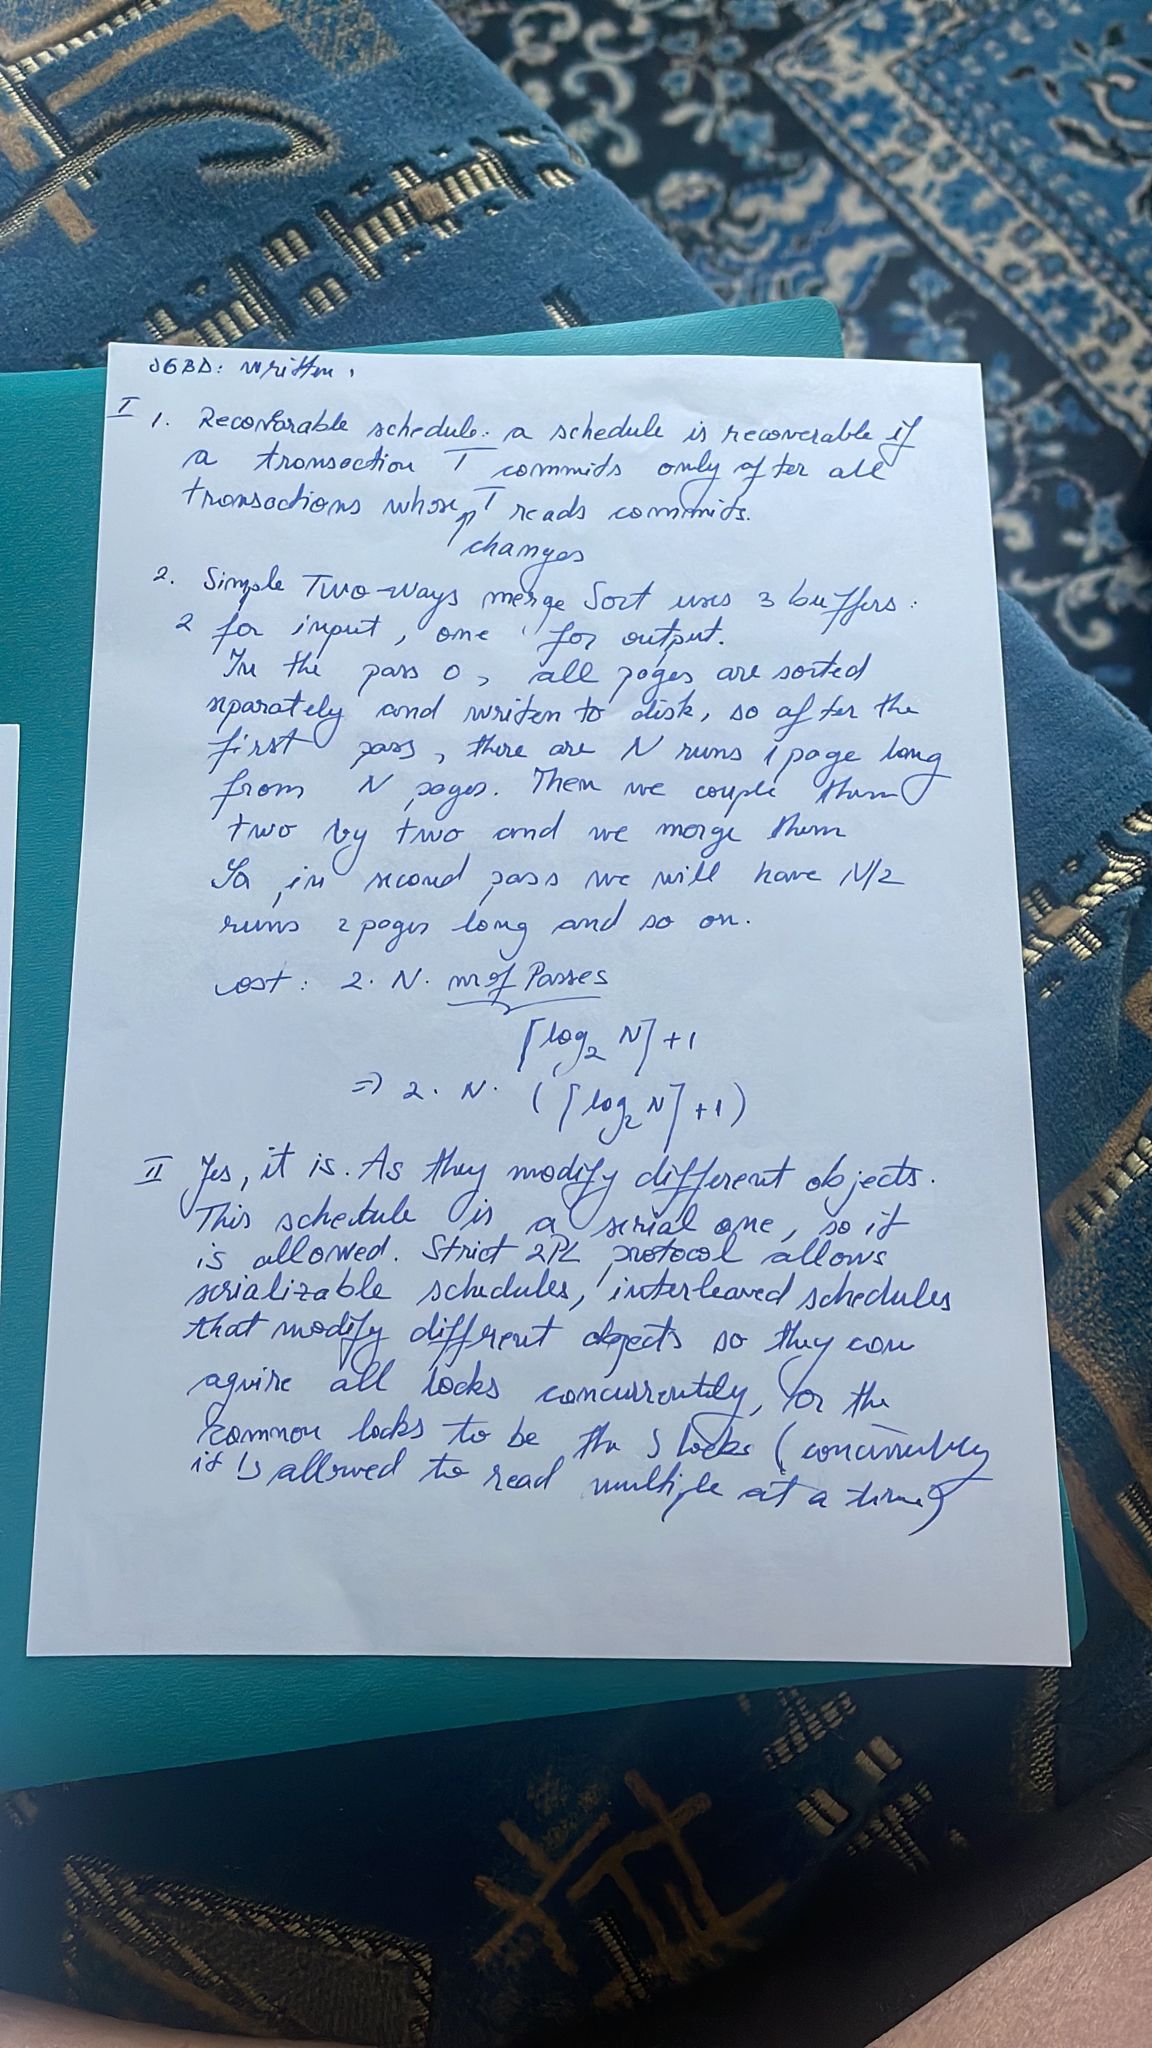 SGBD: Written.
I 1. Recovarable schedule: a schedule is recoverable if
a transaction T commits only after all
transactions whose T reads commits.
changes
2. Simple Two-Ways merge Sort uses 3 buffers:
2 for input, one for output.
In the pass 0, all pages are sorted
sparately and writen to disk, so after the
first pass, there are N runs 1 page long
from N pages. Then we couple them
two by two and we merge them
So, in second pass we will have N/2
runs 2 pages long and so on.
cost: 2. N. nr of Passes
⌈log₂ N⌉ +1
=> 2. N. (⌈log₂ N⌉ +1)
II Yes, it is. As they modify different objects.
This schedule is a serial one, so it
is allowed. Strict 2PL protocol allows
serializable schedules, interleaved schedules
that modify different objects so they can
aquire all locks concurrently, or the
common locks to be the S locks (concurrently
it is allowed to read multiple at a time)